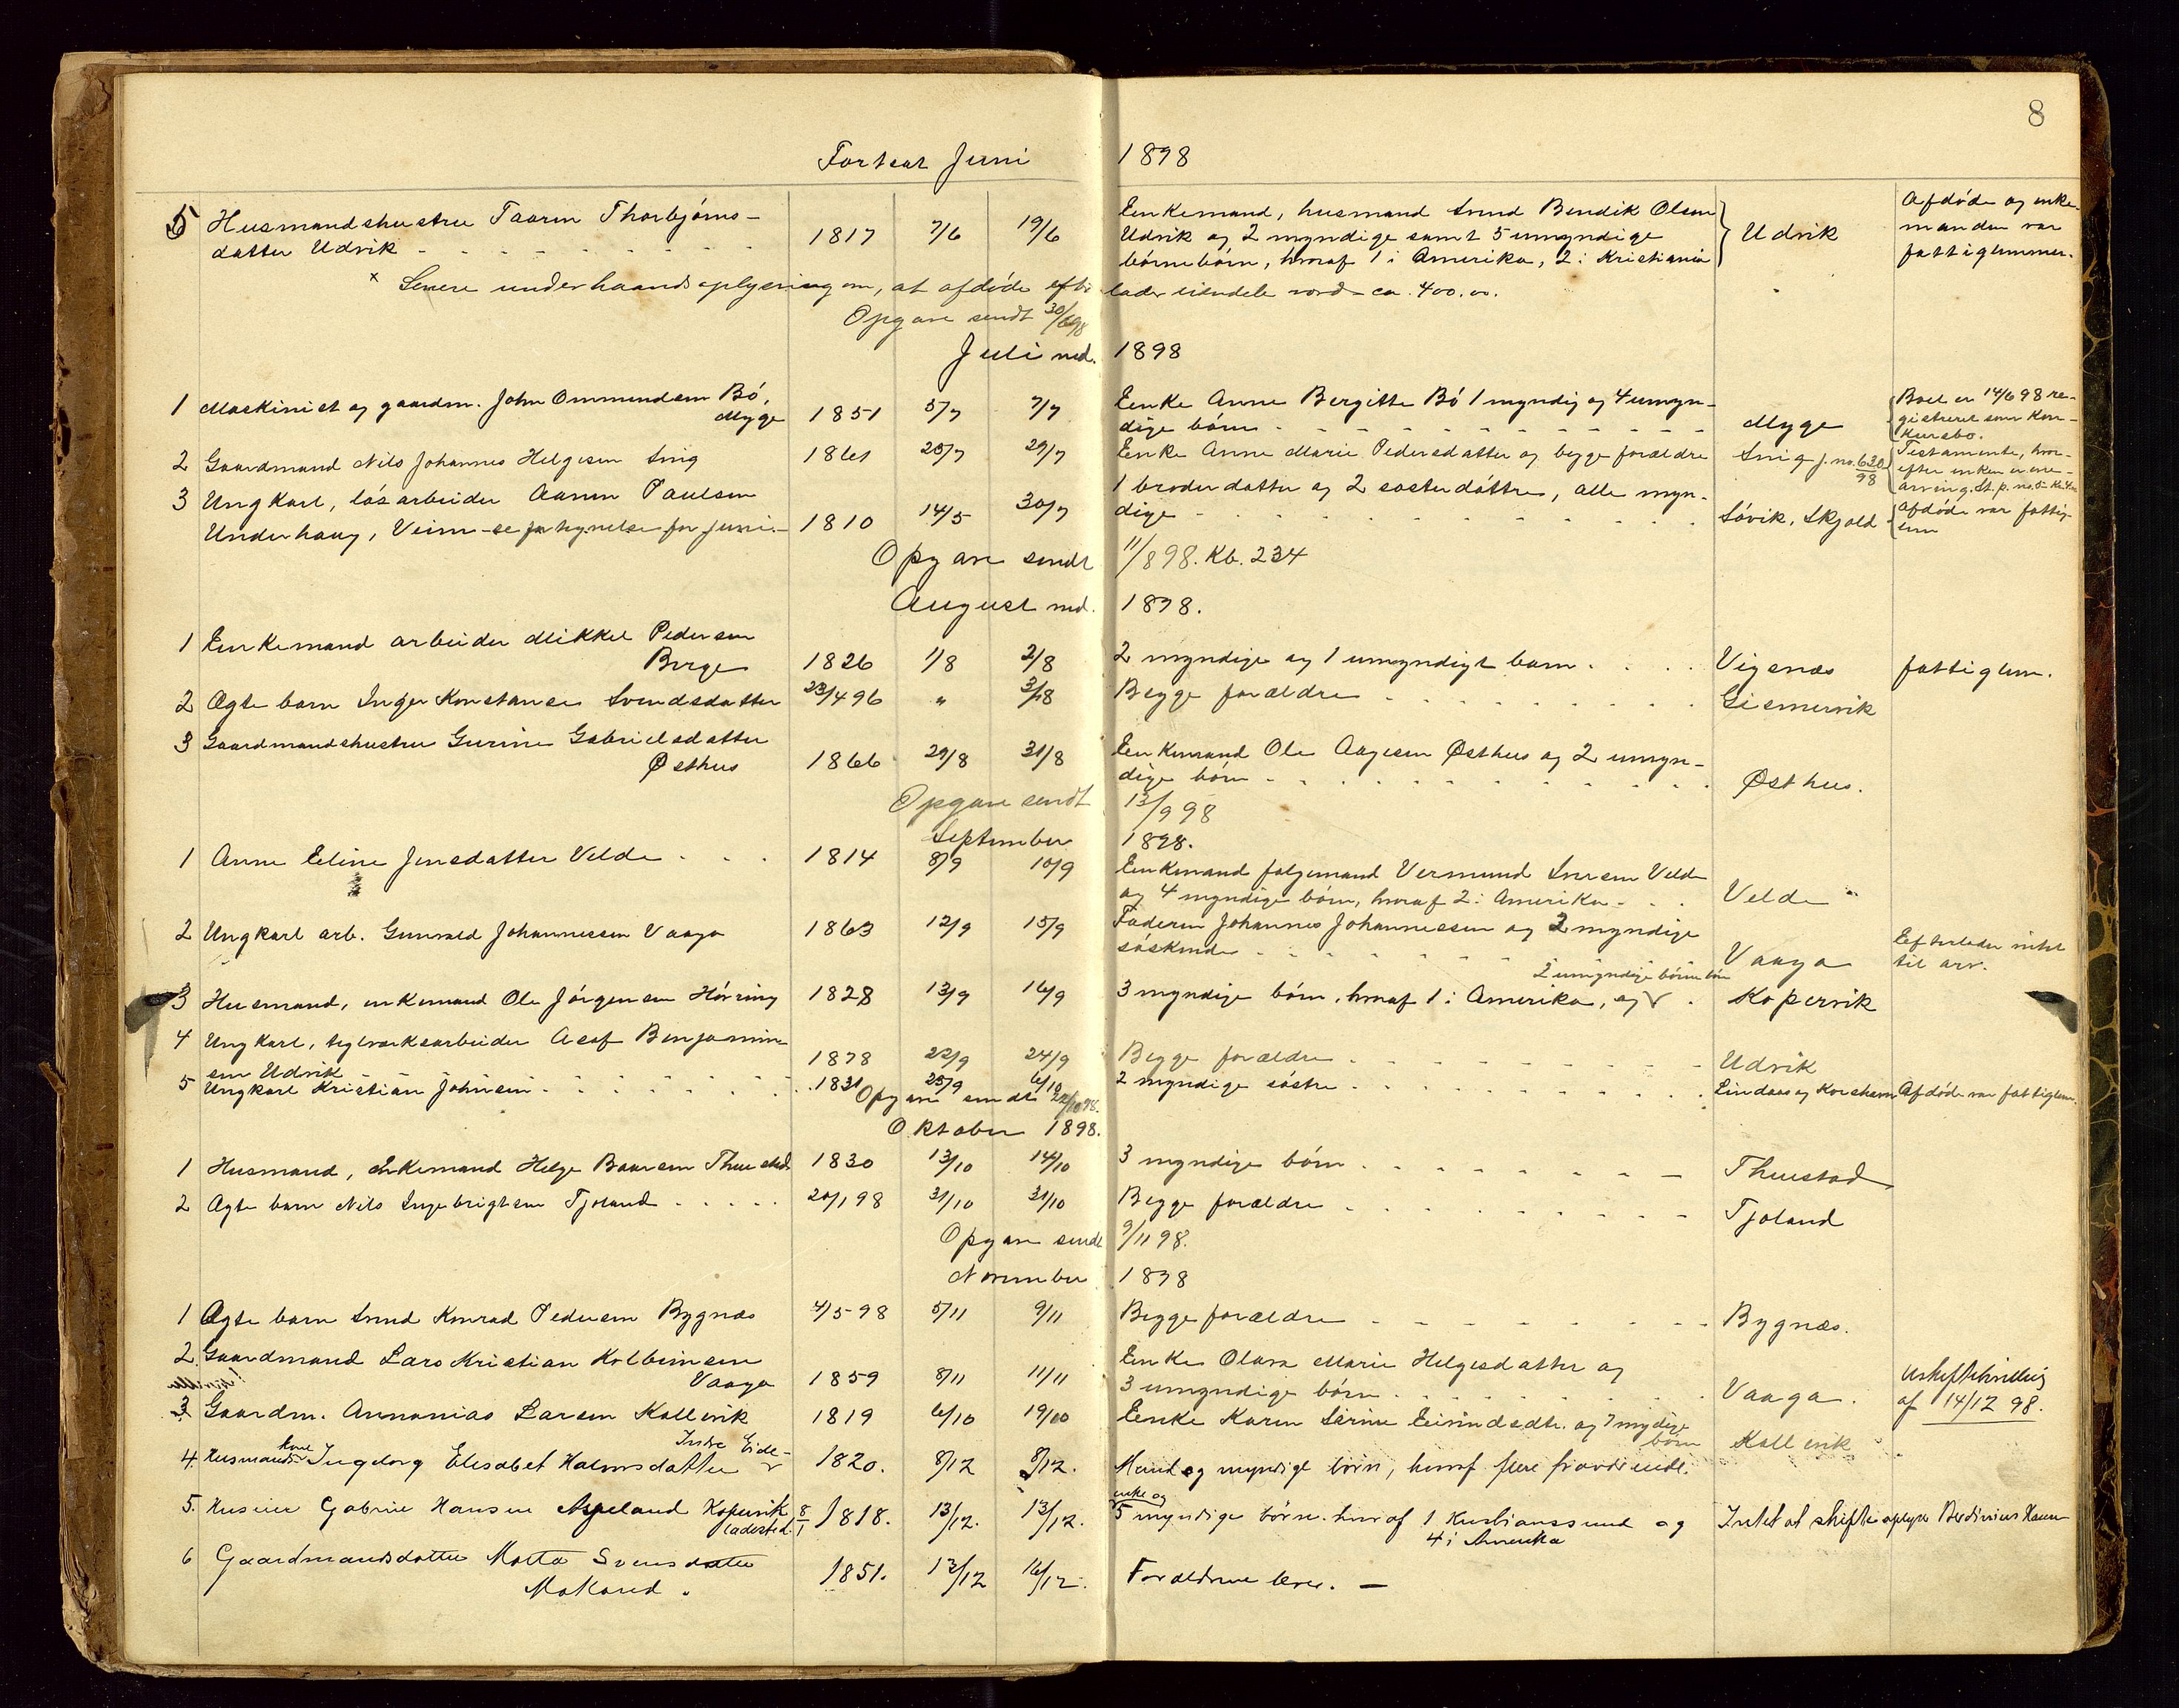 8
Fortsat Juni 1898
5 Husmandshustru Taarin Thorbjørns-
datter Udvik - - - 1817 7/6 19/6 Enkemand, husmand Svend Bendik Olsen
Udvik og 2 myndige samt 5 umyndige
børnebørn, hvoraf 1 i Amerika, 2 i Kristiania } Udvik
Afdøde og enke-
manden var
fattiglemmer.
x Senere underhaandsoplysning om, at afdøde efter lader eiendele værd - ca. 400.00.
Opgave sendt 30/6 98
Juli md. 1898
1 Maskinist og gaardm. John Ommundsen Bø,
Myge 1851 5/7 7/7 Enke Anne Bergitte Bø 1 myndig og 4 umyn-
dige børn - - - Myge
Boet er 14/6 98 re-
gistreret som kon-
kursbo.
2 Gaardmand Nils Johannes Helgesen Snig 1861 28/7 29/7 Enke Anne Marie Pedersdatter og begge forældre Snig j. no. 630/98
Testamente, hvor-
efter enken er ene-
arving. St. p. no. 5
3 Ungkarl, løsarbeider Aanen Paulsen
Underhaug, Veim - se fortegnelse for Juni. - 1810 14/5 30/7 1 broderdatter og 2 søsterdøttre, alle myn-
dige - - - Søvik, Skjold
Afdøde var fattig-
lem
Opgave sendt 11/8 98. Kb. 234
August md. 1898.
1 Enkemand arbeider Mikkel Pedersen
Berge 1826 1/8 2/8 2 myndige og 1 umyndigt barn . . . Vigsnæs fattiglem.
2 Ægte barn Inger Konstanse Svendsdatter 23/4 96 " 3/8 Begge forældre - - - Gismervik
3 Gaardmandshustru Gurine Gabrielsdatter
Østhus 1866 29/8 31/8 Enkemand Ole Aagesen Østhus og 2 umyn-
dige børn - - - Østhus.
Opgave sendt 13/9 98
September 1898.
1 Anne Eline Jensdatter Velde . . . 1814 8/9 10/9 Enkemand følgemand Vermund Iversen Velde
og 4 myndige børn, hvoraf 2 i Amerika - . . Velde
2 Ungkarl arb. Gunvald Johannessen Vaaga 1863 12/9 15/9 Faderen Johannes Johannessen og 2 myndige
søskende - - - Vaaga
Efterlader intet
til arv.
2 umyndige børnebørn
3 Husmand, enkemand Ole Jørgensen Hørring 1828 13/9 16/9 3 myndige børn, hvoraf 1 i Amerika, og v . Kopervik
4 Ungkarl, teglværksarbeider Asaf Benjamin-
sen Udvik 1878 22/9 24/9 Begge forældre - - - Udvik
5 Ungkarl Kristian Johnsen . . . 1831 25/9 6/10 2 myndige søstre - - - Lindaas og Korshavn Afdøde var fattiglem.
Opgave sendt 22/10 98.
Oktober 1898.
1 Husmand, Enkemand Helge Baarsen Thuestad 1830 13/10 14/10 3 myndige børn - - - Thuestad
2 Ægte barn Nils Ingebrigtsen Tjoland . . . 20/1 98 31/10 31/10 Begge forældre - - - Tjoland
Opgave sendt 9/11 98.
November 1898
1 Ægte barn Svend Konrad Pedersen Bygnæs 4/5-98 5/11 9/11 Begge forældre - - - Bygnæs.
2 Gaardmand Lars Kristian Kolbeinsen
Vaaga 1859 8/11 11/11 Enke Olava Marie Helgesdatter og
3 umyndige børn . . . Vaaga.
Uskiftebevilling
af 14/12 98.
3 Gaardm. Annanias Larsen Kallevik 1819 6/10 19/10 Enke Karen Serine Eivindsdtr. og 7 myndige
børn Kallevik
4. Husmandskone Ingeborg Elisabet Halvorsdatter Indre Eide-
v 1820. 8/12 8/12. Mand og myndige børn, hvoraf flere fraværende.
5. Huseier Gabriel Hansen Aspeland Kopervik
ladested. 8/1 1818. 13/12. 13/12. enke og
5 myndige børn. hvoraf 1 Kristianssund og
4 i Amerika Intet at skifte oplyser Berdinius Hansen
6 Gaardmandsdatter Malta Svensdatter
Mokared. 1851. 13/12 16/12. Forældrene lever. -